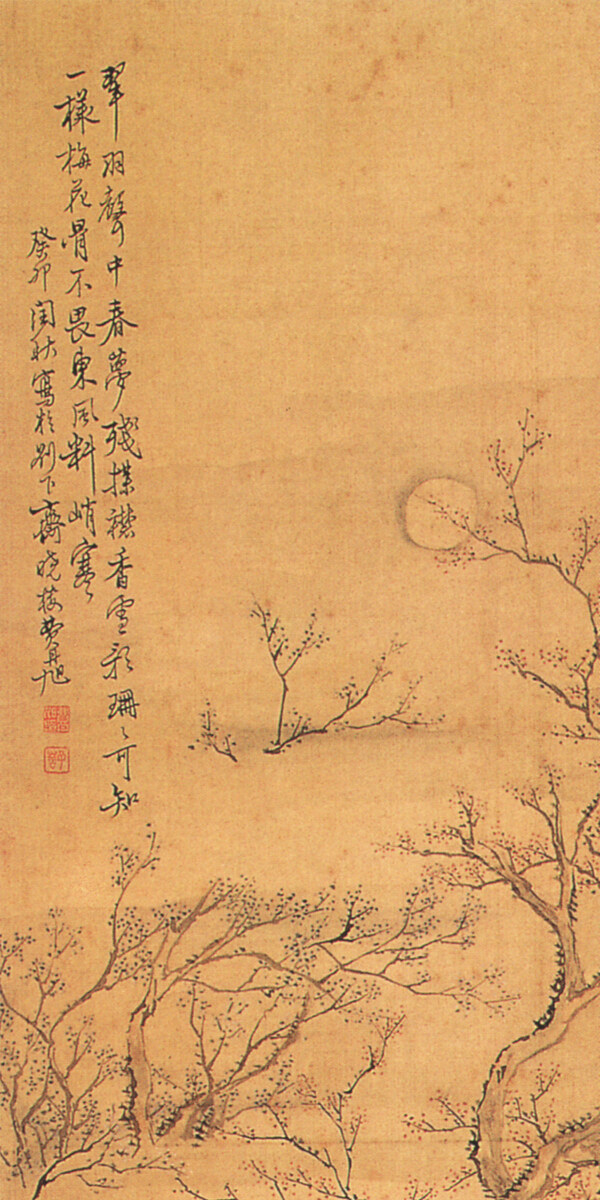 翠羽聲中春夢殘撲襟香雪影珊〻可知
一樣梅花骨不畏東風料峭寒
癸卯閏秋寫於別下齋曉樓費丹旭